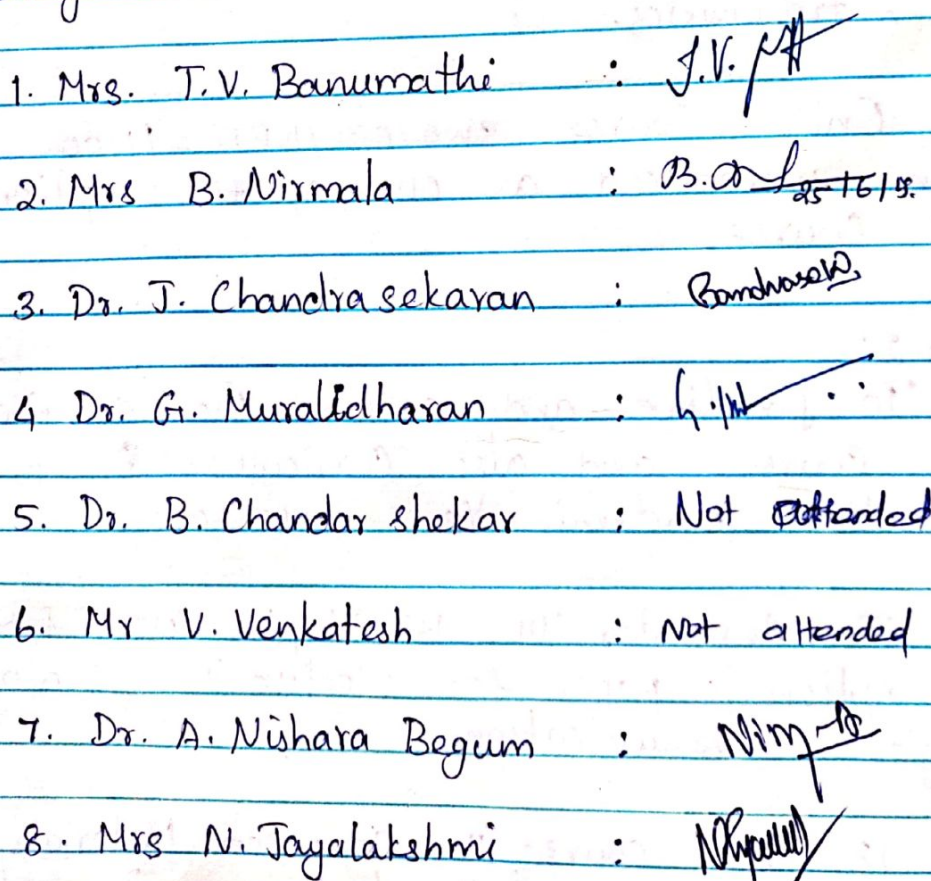 1. Mrs. T.V. Banumathi : J.V.
2. Mrs B. Nirmala : B.
3. Dr. J. Chandrasekaran :
4 Dr. G. Muralidharan : G.
5. Dr. B. Chandar shekar : Not attended
6. Mr V. Venkatesh : Not attended
7. Dr. A. Nishara Begum :
8. Mrs N. Jayalakshmi :